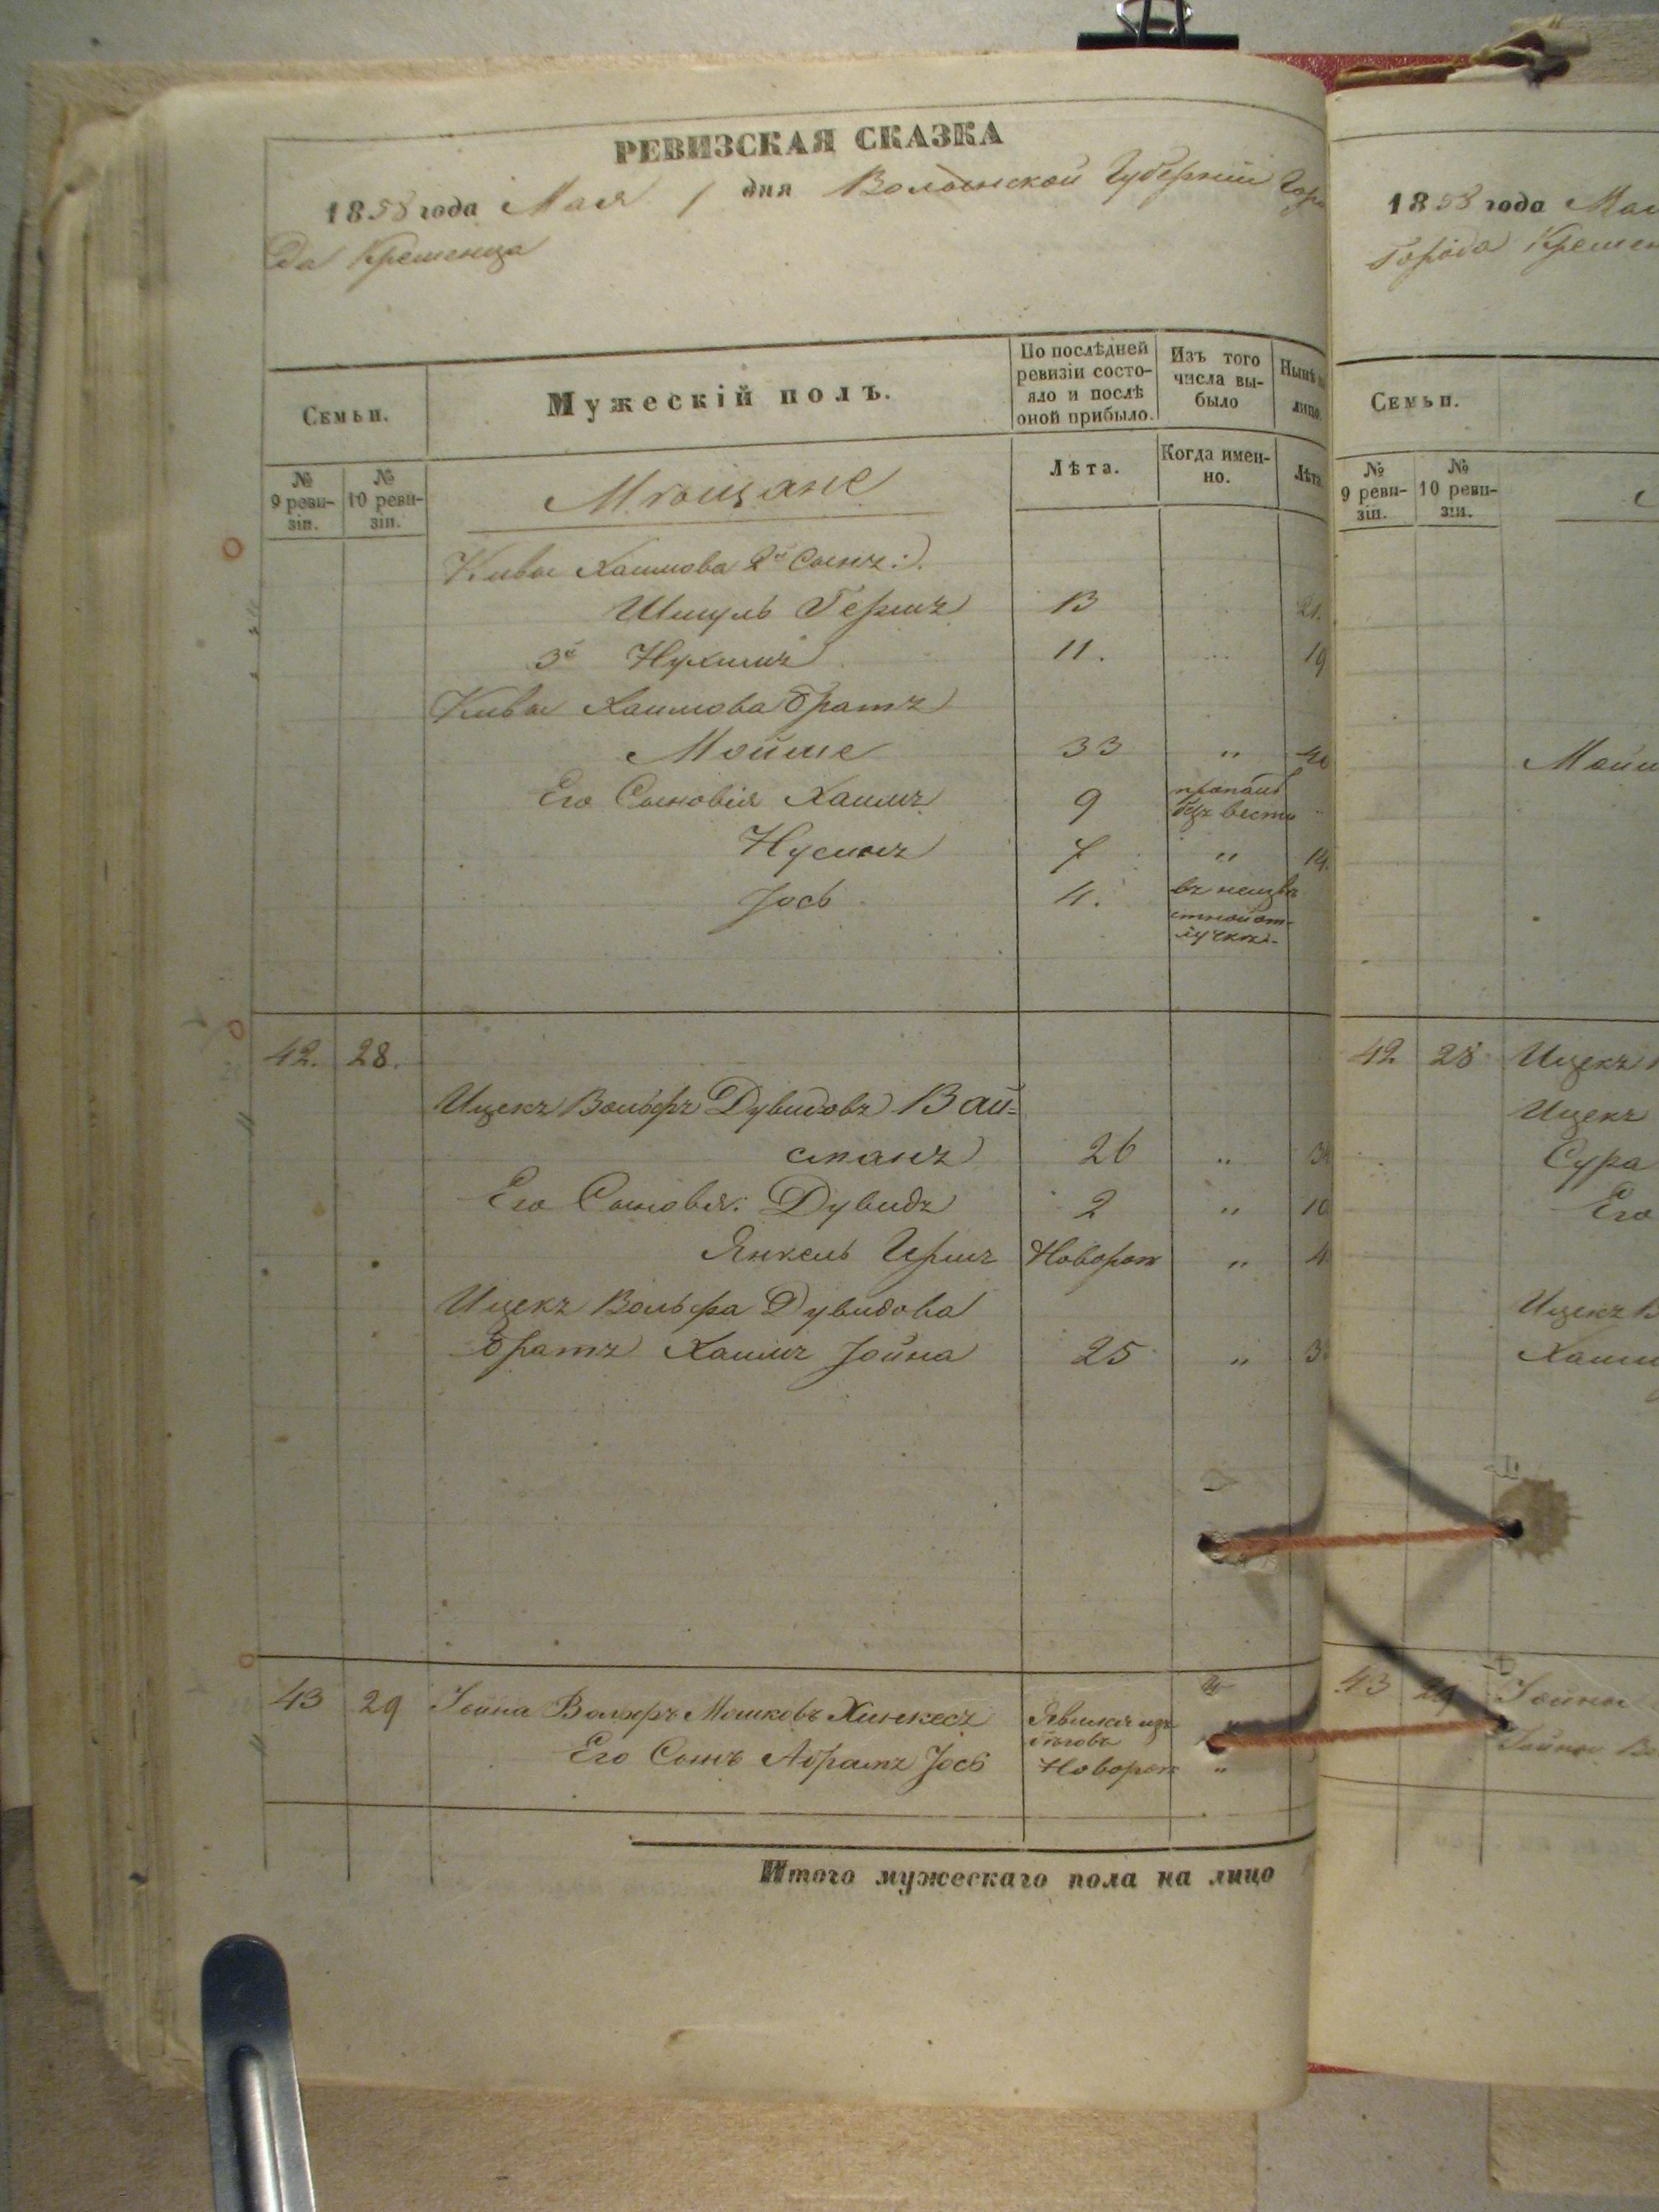 РЕВИЗСКАЯ СКАЗКА
1858 года Мая 1 дня Волынской Губерніи Горо
да Кременца
Семьи.
Мужескій полъ.
По послѣдней ревизіи состояло и послѣ оной прибыло.
Изъ того числа выбыло
Нынѣ на лицо.
№ 9 ревизіи.
№ 10 ревизіи.
Мѣщане
Лѣта.
Когда именно.
Лѣта
Кивы Хаимова 2й Сынъ:
Шмуль Гершъ 13 21.
3й Нухимъ 11. 19
Кивы Хаимова братъ
Мойше 33 " 40
Его Сыновія Хаимъ 9 пропалъ безъ вести
Нусымъ 7 " 14.
Іось 4. въ неизвѣстной отлучки
42. 28.
Ицекъ Вольфъ Дувидовъ Вай=
сманъ 26 " 34
Его Сыновя: Дувидъ 2 " 10
Янкель Гершъ Новорож " 4
Ицекъ Вольфа Дувидова
братъ Хаимъ Іойна 25 " 3
43 29 Іойна Вольфъ Мошковъ Хинкесъ Явился изъ бѣговъ "
Его Сынъ Абрамъ Іось Новорож "
Итого мужескаго пола на лицо
1858 года Мая
Города Кремен
Семьи.
№ 9 ревизіи.
№ 10 ревизіи.
Мойш
42 28 Ицекъ
Ицекъ
Сура
Его
Ицекъ В
Хаим
43 29 Іойны
Іойны Во